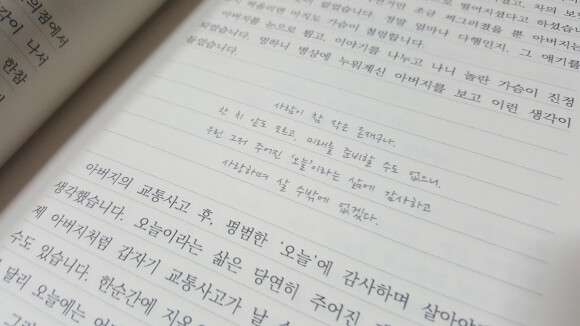 의점에서
각이 나서
한참
떨어지셨다고 하셨습니
조금 찌그러졌을 뿐 아버지는
아직도 가슴이 철렁합니다. 정말 얼마나 다행인지. 그 얘기를
아버지를 눈으로 뵙고, 이야기를 나누고 나니 놀란 가슴이 진정
되었습니다. 멍하니 병상에 누워계신 아버지를 보고 이런 생각이
들었습니다.
사람이 참 작은 존재구나.
한 치 앞도 모르고, 미래를 준비할 수도 없으니.
우린 그저 주어진 '오늘'이라는 삶에 감사하고
사랑하며 살 수밖에 없겠다.
아버지의 교통사고 후, 평범한 '오늘'에 감사하며 살아야
생각했습니다. 오늘이라는 삶은 당연히 주어진
제 아버지처럼 갑자기 교통사고가 날 수
수도 있습니다. 한순간에
달리 오늘에는